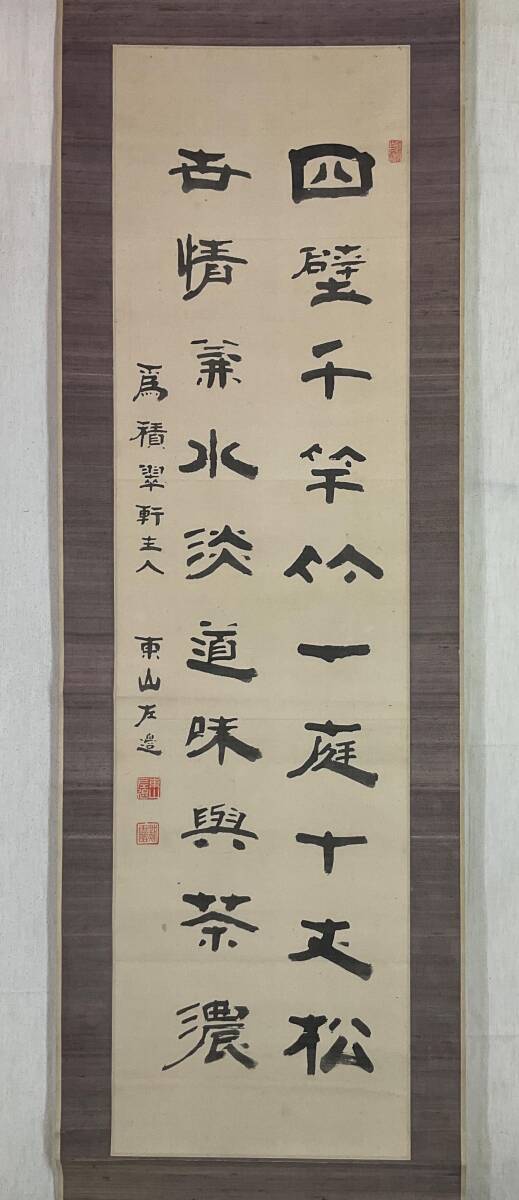 四壁千竿竹一庭十丈松
世情兼水淡道味與茶濃
爲積翠軒主人 東山左邉